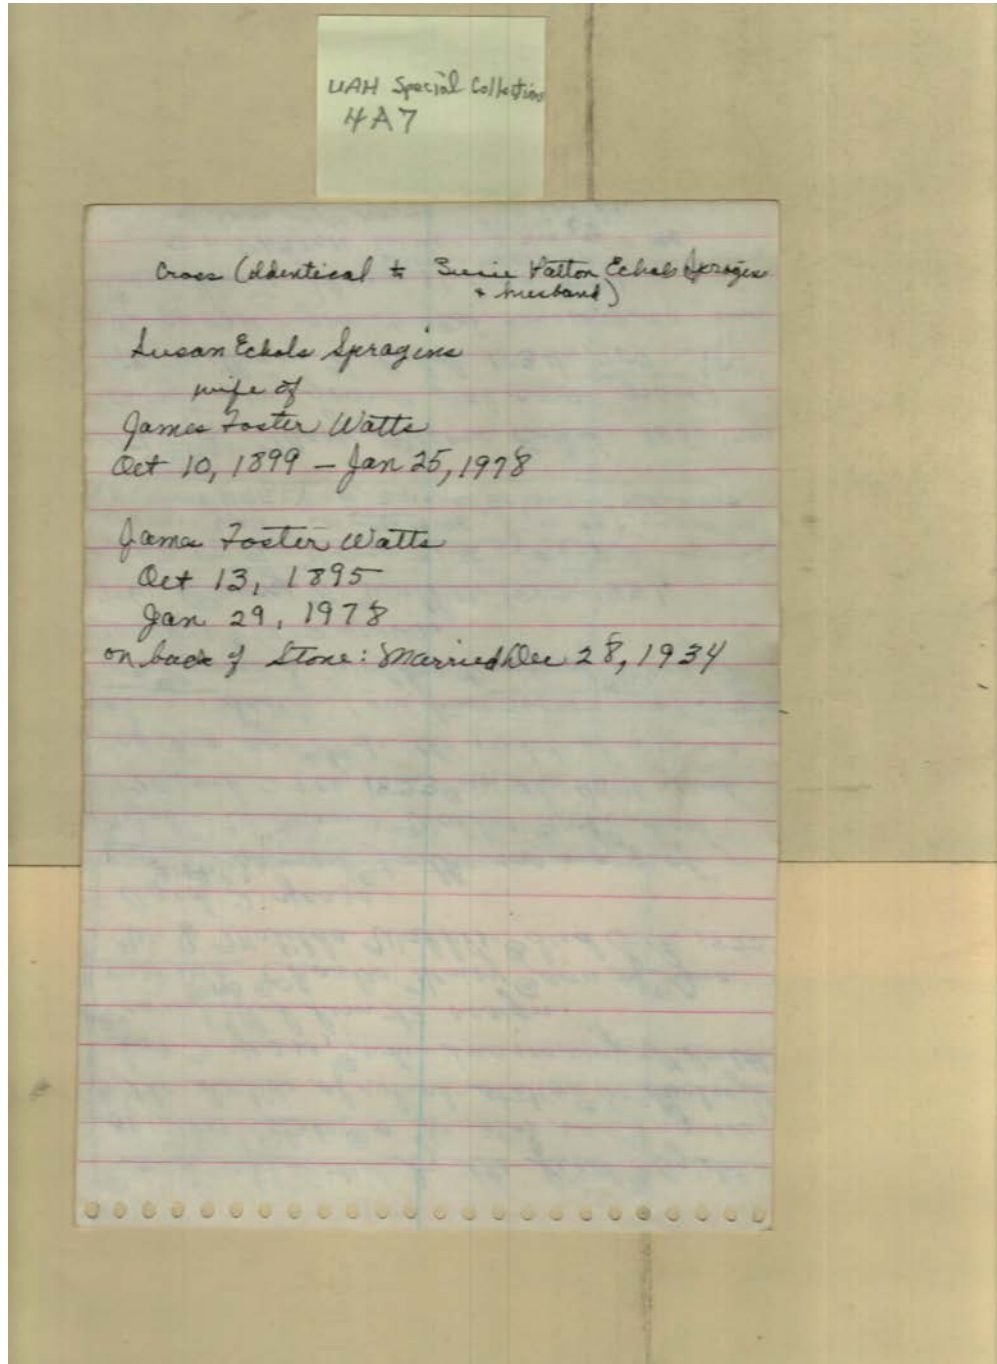 UAH Special Collections
4A7
Cross (Identical to Susie Patton Echols Spragins
+ husband)
Susan Echols Spragins
wife of
James Foster Watts
Oct 10, 1899 – Jan 25, 1978
James Foster Watts
Oct 13, 1895
Jan 29, 1978
on back of Stone: Married Dec 28, 1934